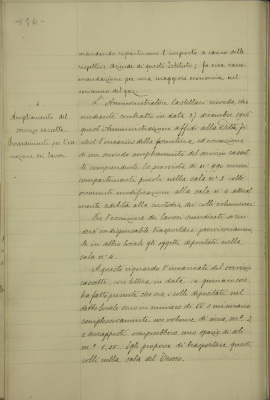 -154-
mandando ripartirne l'importo a carico delle
rispettive Aziende di questo Istituto; fa una racco-
mandazione per una maggiore economia nel
consumo del gaz.
4
Ampliamento del
servizio cassette
Provvedimenti per l'ese
cuzione dei lavori
L'Amministratore Castellani ricorda che
mediante contratto in data 27 dicembre 1906
quest'Amministrazione affidò alla Ditta
l'incarico della fornitura ed esecuzione
di un secondo ampliamento del servizio casset-
te comprendente la provvista di n°
compartimenti piccoli nella sala n° 3 colle
occorrenti modificazioni alla sala n° 4 attual-
mente adibita alla custodia dei colli voluminosi.
Per l'esecuzione dei lavori summenzionati si ren-
derà indispensabile trasportare provvisoriamen-
te in altro locale gli oggetti depositati nella
sala n° 4.
A questo riguardo l'incaricato del servizio
cassette, con lettera in data gennaio corr.
ha fatto presente che ora i colli depositati nel
detto locale sono in numero di 58 e misurano
complessivamente un volume di circa m.c 2
e sovrapposti comporrebbero uno spazio di altri
m.c 1,50. Egli propone di trasportare questi
colli nella sala del Tesoro.